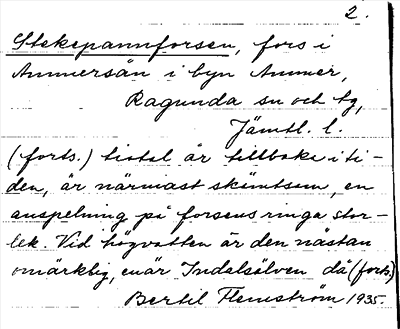 2.
Stekepannforsen, fors i
Ammersån i byn Ammer,
Ragunda sn och tg,
Jämtl. l.
(forts.) tiotal år tillbaka i ti-
den, är närmast skämtsam, en
anspelning på forsens ringa stor-
lek. Vid högvatten är den nästan
omärklig, enär Indalsälven då (forts.)
Bertil Flemström 1935.